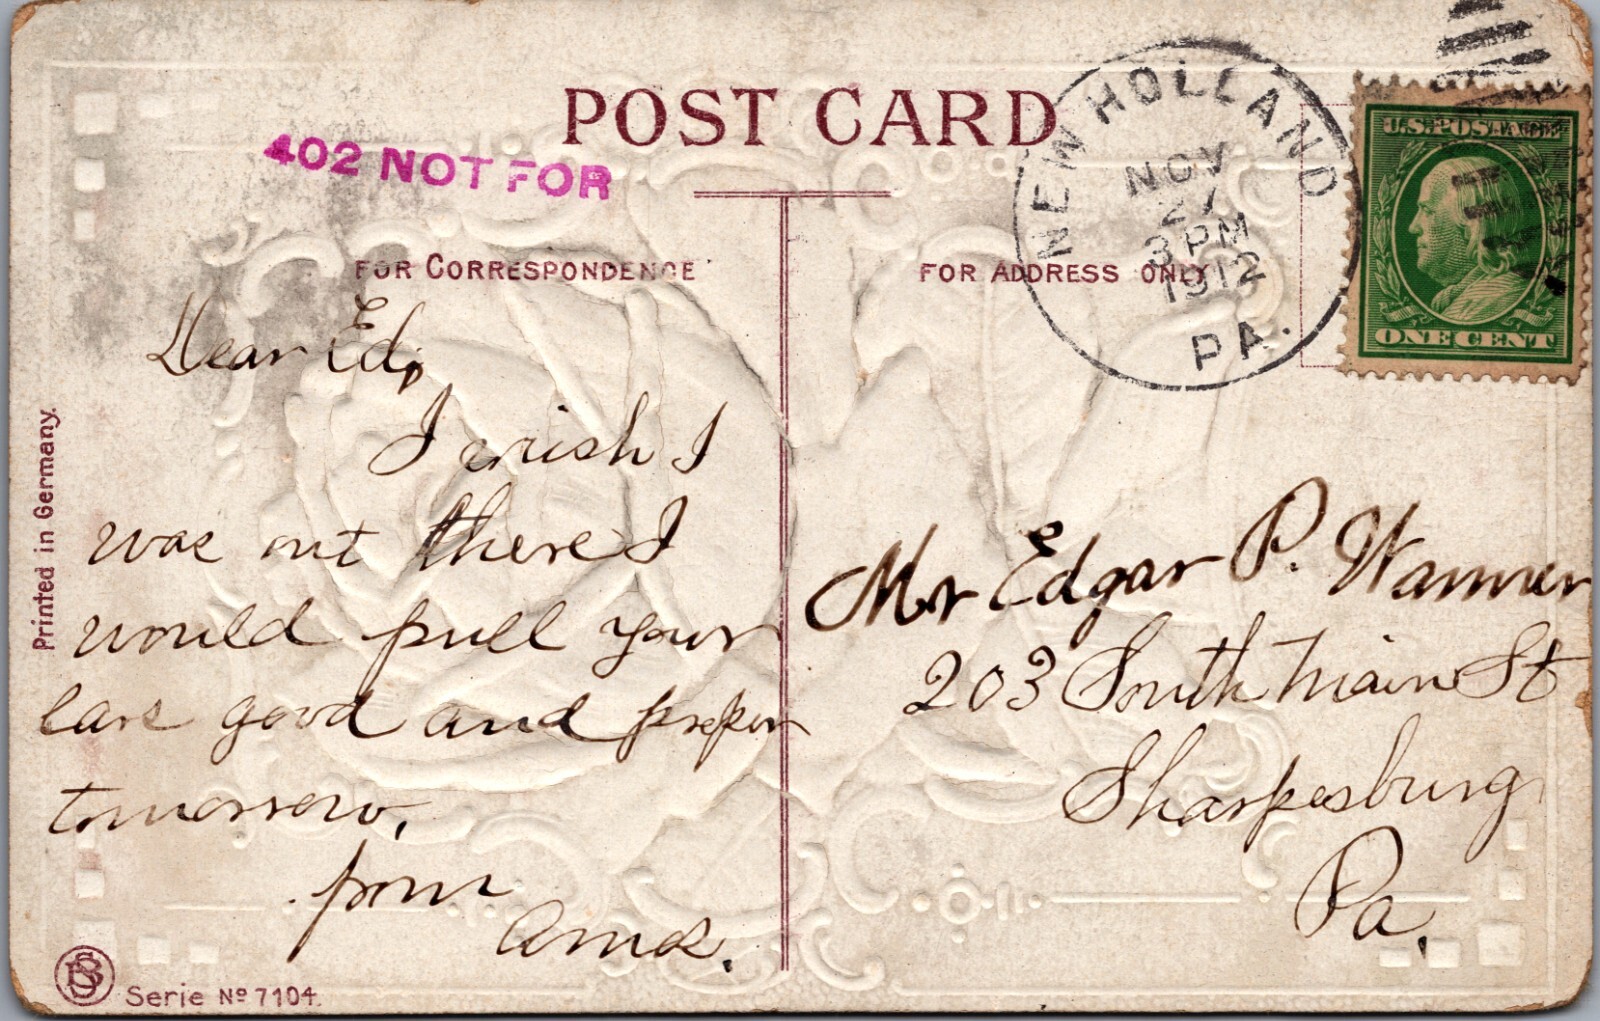 POST CARD
402 NOT FOR
NEW HOLLAND
NOV
27
3 PM
1912
PA.
U.S. POSTAGE
ONE CENT
FOR CORRESPONDENCE
FOR ADDRESS ONLY
Dear Ed,
I wish I
was out there I
would pull your
ears good and proper
tomorrow.
from
Amos.
Mr Edgar P. Wanner
203 South Main St
Sharpesburg
Pa.
Printed in Germany.
Serie No 7104.